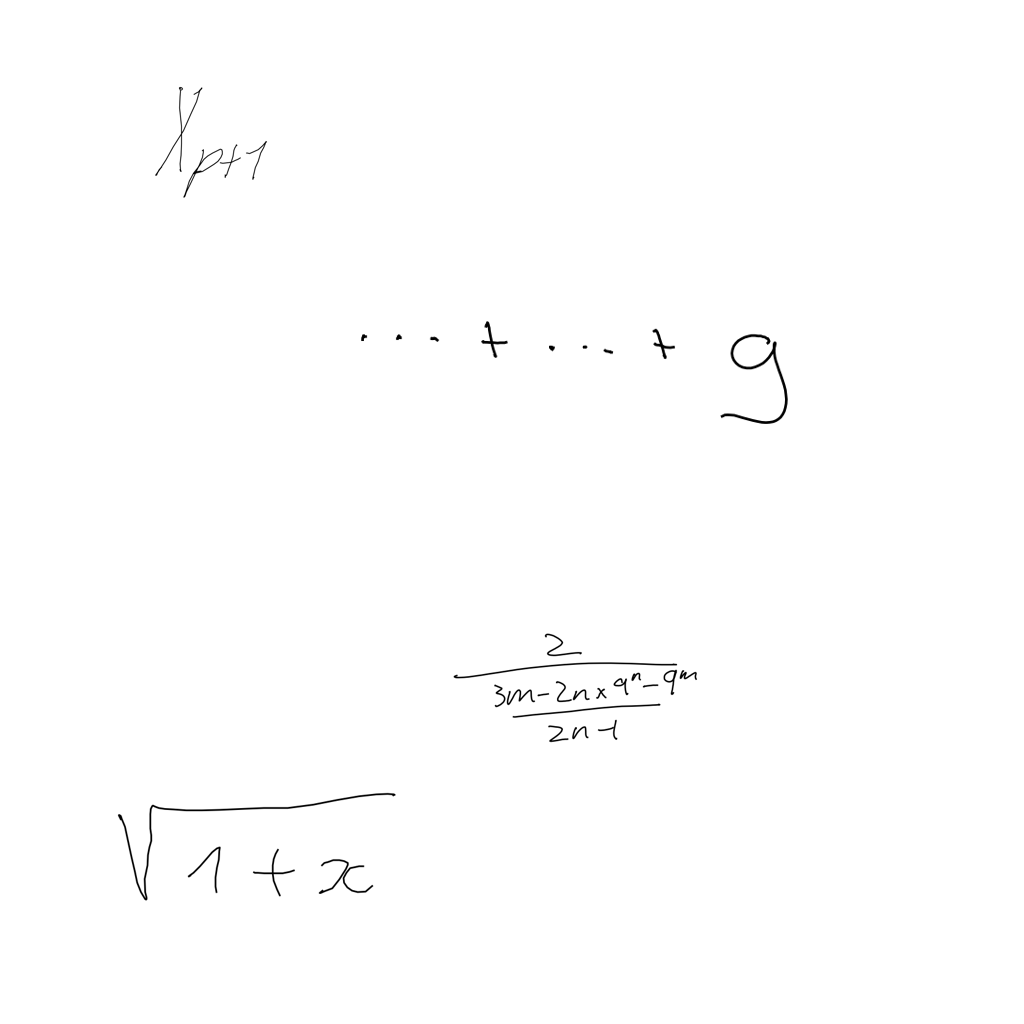 X_{p+1}
... + ... + g
\frac{2}{\frac{3m-2n \times 9^n - 9^m}{2n-1}}
\sqrt{1+x}